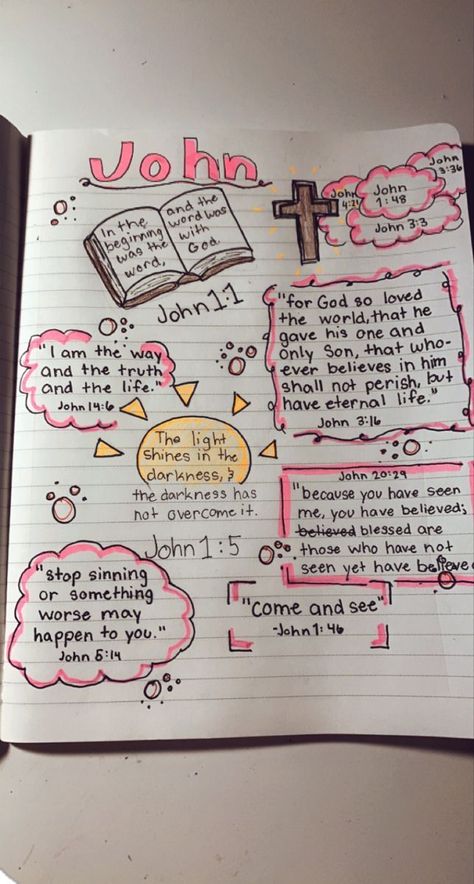 John
In the
beginning
was the
word,
and the
word was
with
God.
John 1:1
John
4:21
John
1:48
John
3:36
John 3:3
"for God so loved
the world, that he
gave his one and
only Son, that who-
ever believes in him
shall not perish, but
have eternal life."
John 3:16
"I am the way
and the truth
and the life."
John 14:6
The light
shines in the
darkness, &
the darkness has
not overcome it.
John 1:5
John 20:29
"because you have seen
me, you have believed;
believed blessed are
those who have not
seen yet have believe
"stop sinning
or something
worse may
happen to you."
John 5:14
"come and see"
-John 1:46